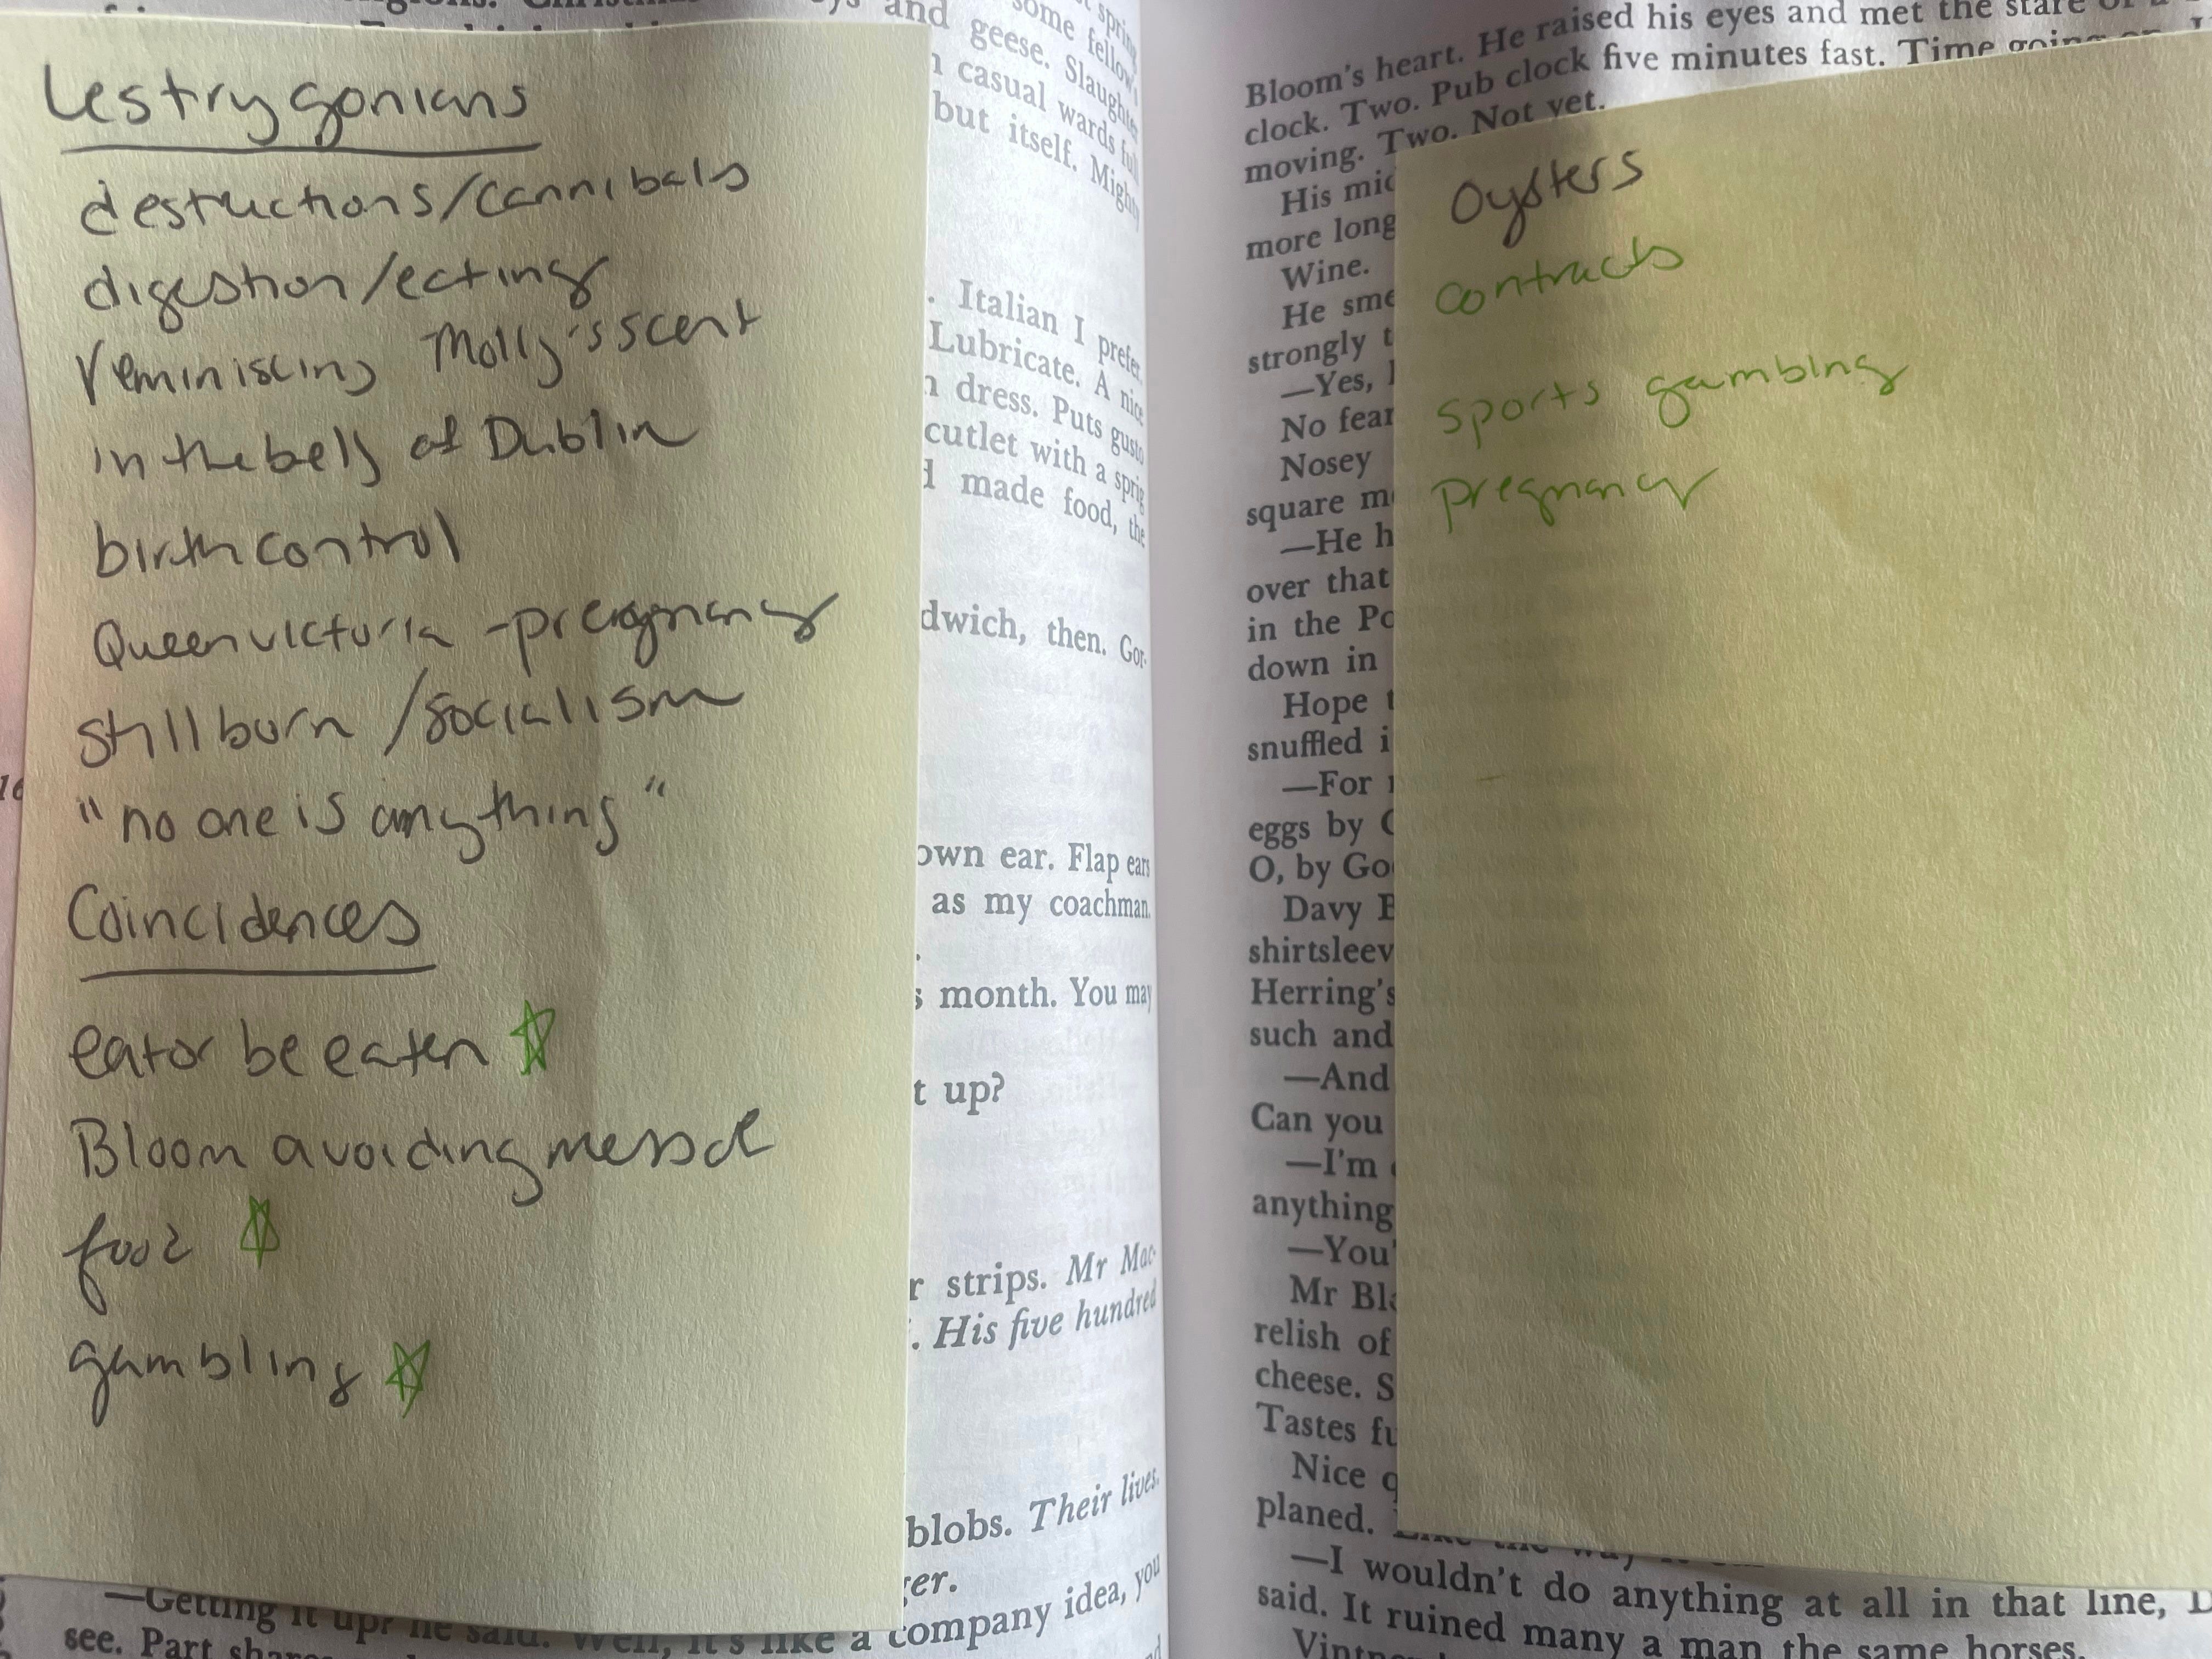 Lestrygonians
destructions/cannibals
digestion/eating
reminiscing Molly's scent
in the belly of Dublin
birth control
Queen victoria - pregnancy
stillborn /socialism
"no one is anything"
Coincidences
eat or be eaten
Bloom avoiding
food
gambling
and geese. Slaughter
some fellow's
casual wards full
but itself. Mighty
. Italian I prefer.
Lubricate. A nice
dress. Puts gusto
cutlet with a sprig
made food, the
dwich, then. Gor-
own ear. Flap ears
as my coachman.
s month. You may
t up?
r strips. Mr Mac-
. His five hundred
blobs. Their lives.
er.
—Getting it up? he said. Well, it's like a company idea, you
see. Part
Bloom's heart. He raised his eyes and met the stare of a
clock. Two. Pub clock five minutes fast. Time going on.
moving. Two. Not yet.
His mid
more long
Wine.
He sme
strongly t
—Yes,
No fear
Nosey
square m
—He h
over that
in the Po
down in
Hope t
snuffled i
—For
eggs by
O, by Go
Davy B
shirtsleev
Herring's
such and
—And
Can you
—I'm
anything
—You'
Mr Blo
relish of
cheese. S
Tastes fu
Nice q
planed. Like the way
—I wouldn't do anything at all in that line, D
said. It ruined many a man the same horses.
Vintn
Oysters
contracts
sports gambing
pregnancy